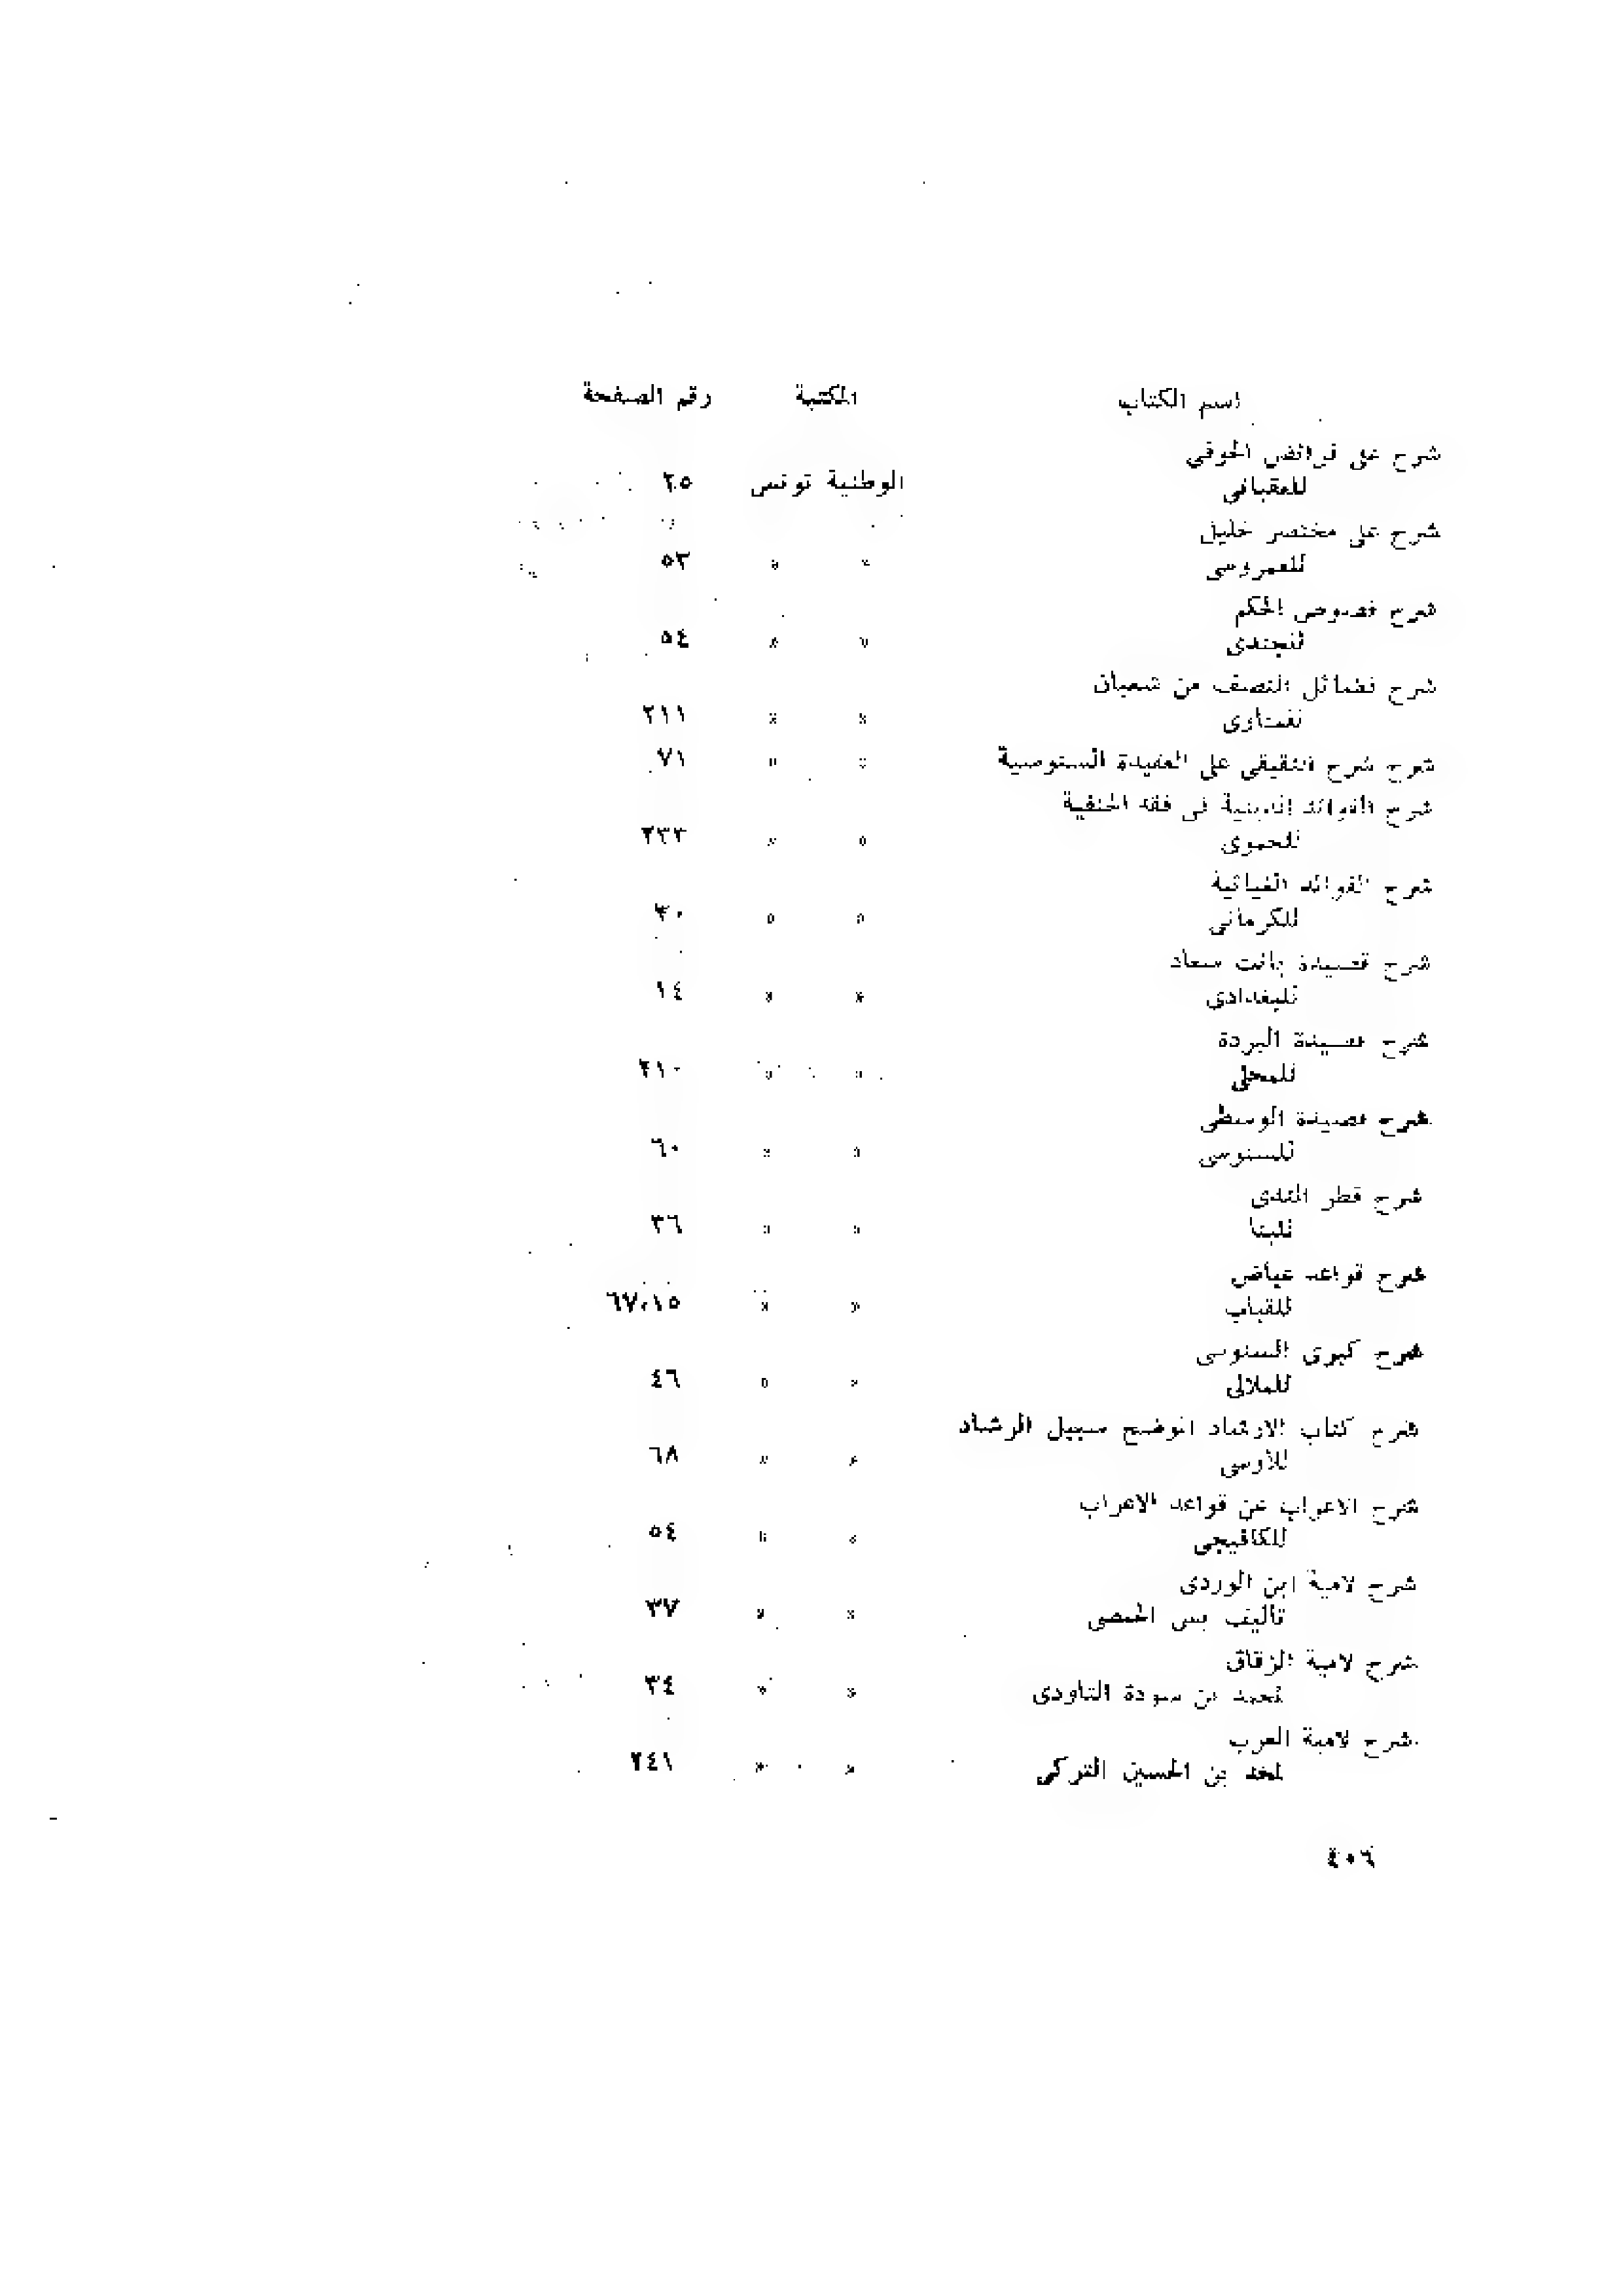 اسم الكتاب المكتبة رقم الصفحة
شرح على فرائض الحوفي
للعقبانى الوطنية تونس ٢٥
شرح على مختصر خليل
للعمروسى » » ٥٣
شرح فصوص الحكم
للجندى » » ٥٤
شرح فضائل النصف من شعبان
» » ٢١١
شرح شرح على العقيدة السنوسية » » ٧١
شرح الفوائد فى فقه الحنفية
للحموى » » ٢٣٣
شرح الفوائد الغياثية
للكرمانى » » ٣٠
شرح قصيدة بانت سعاد
للبغدادى » » ١٤
شرح قصيدة البردة
للمحلى » » ٢١٠
شرح قصيدة الوسطى
للسنوسى » » ٦٠
شرح قطر الندى
للبنا » » ٣٦
شرح قواعد عياض
للقباب » » ٦٧،١٥
شرح كبرى السنوسى
للملالى » » ٤٦
شرح كتاب الارشاد الوضح سبيل الرشاد
للأوسى » » ٦٨
شرح الاعراب عن قواعد الاعراب
للكافيجى » » ٥٤
شرح لامية ابن الوردى
تأليف يس الحمصى » » ٣٧
شرح لامية الزقاق
لمحمد بن سودة التاودى » » ٣٤
شرح لامية العرب
لمحمد بن الحسين التركى » » ٢٤١
٤٠٦